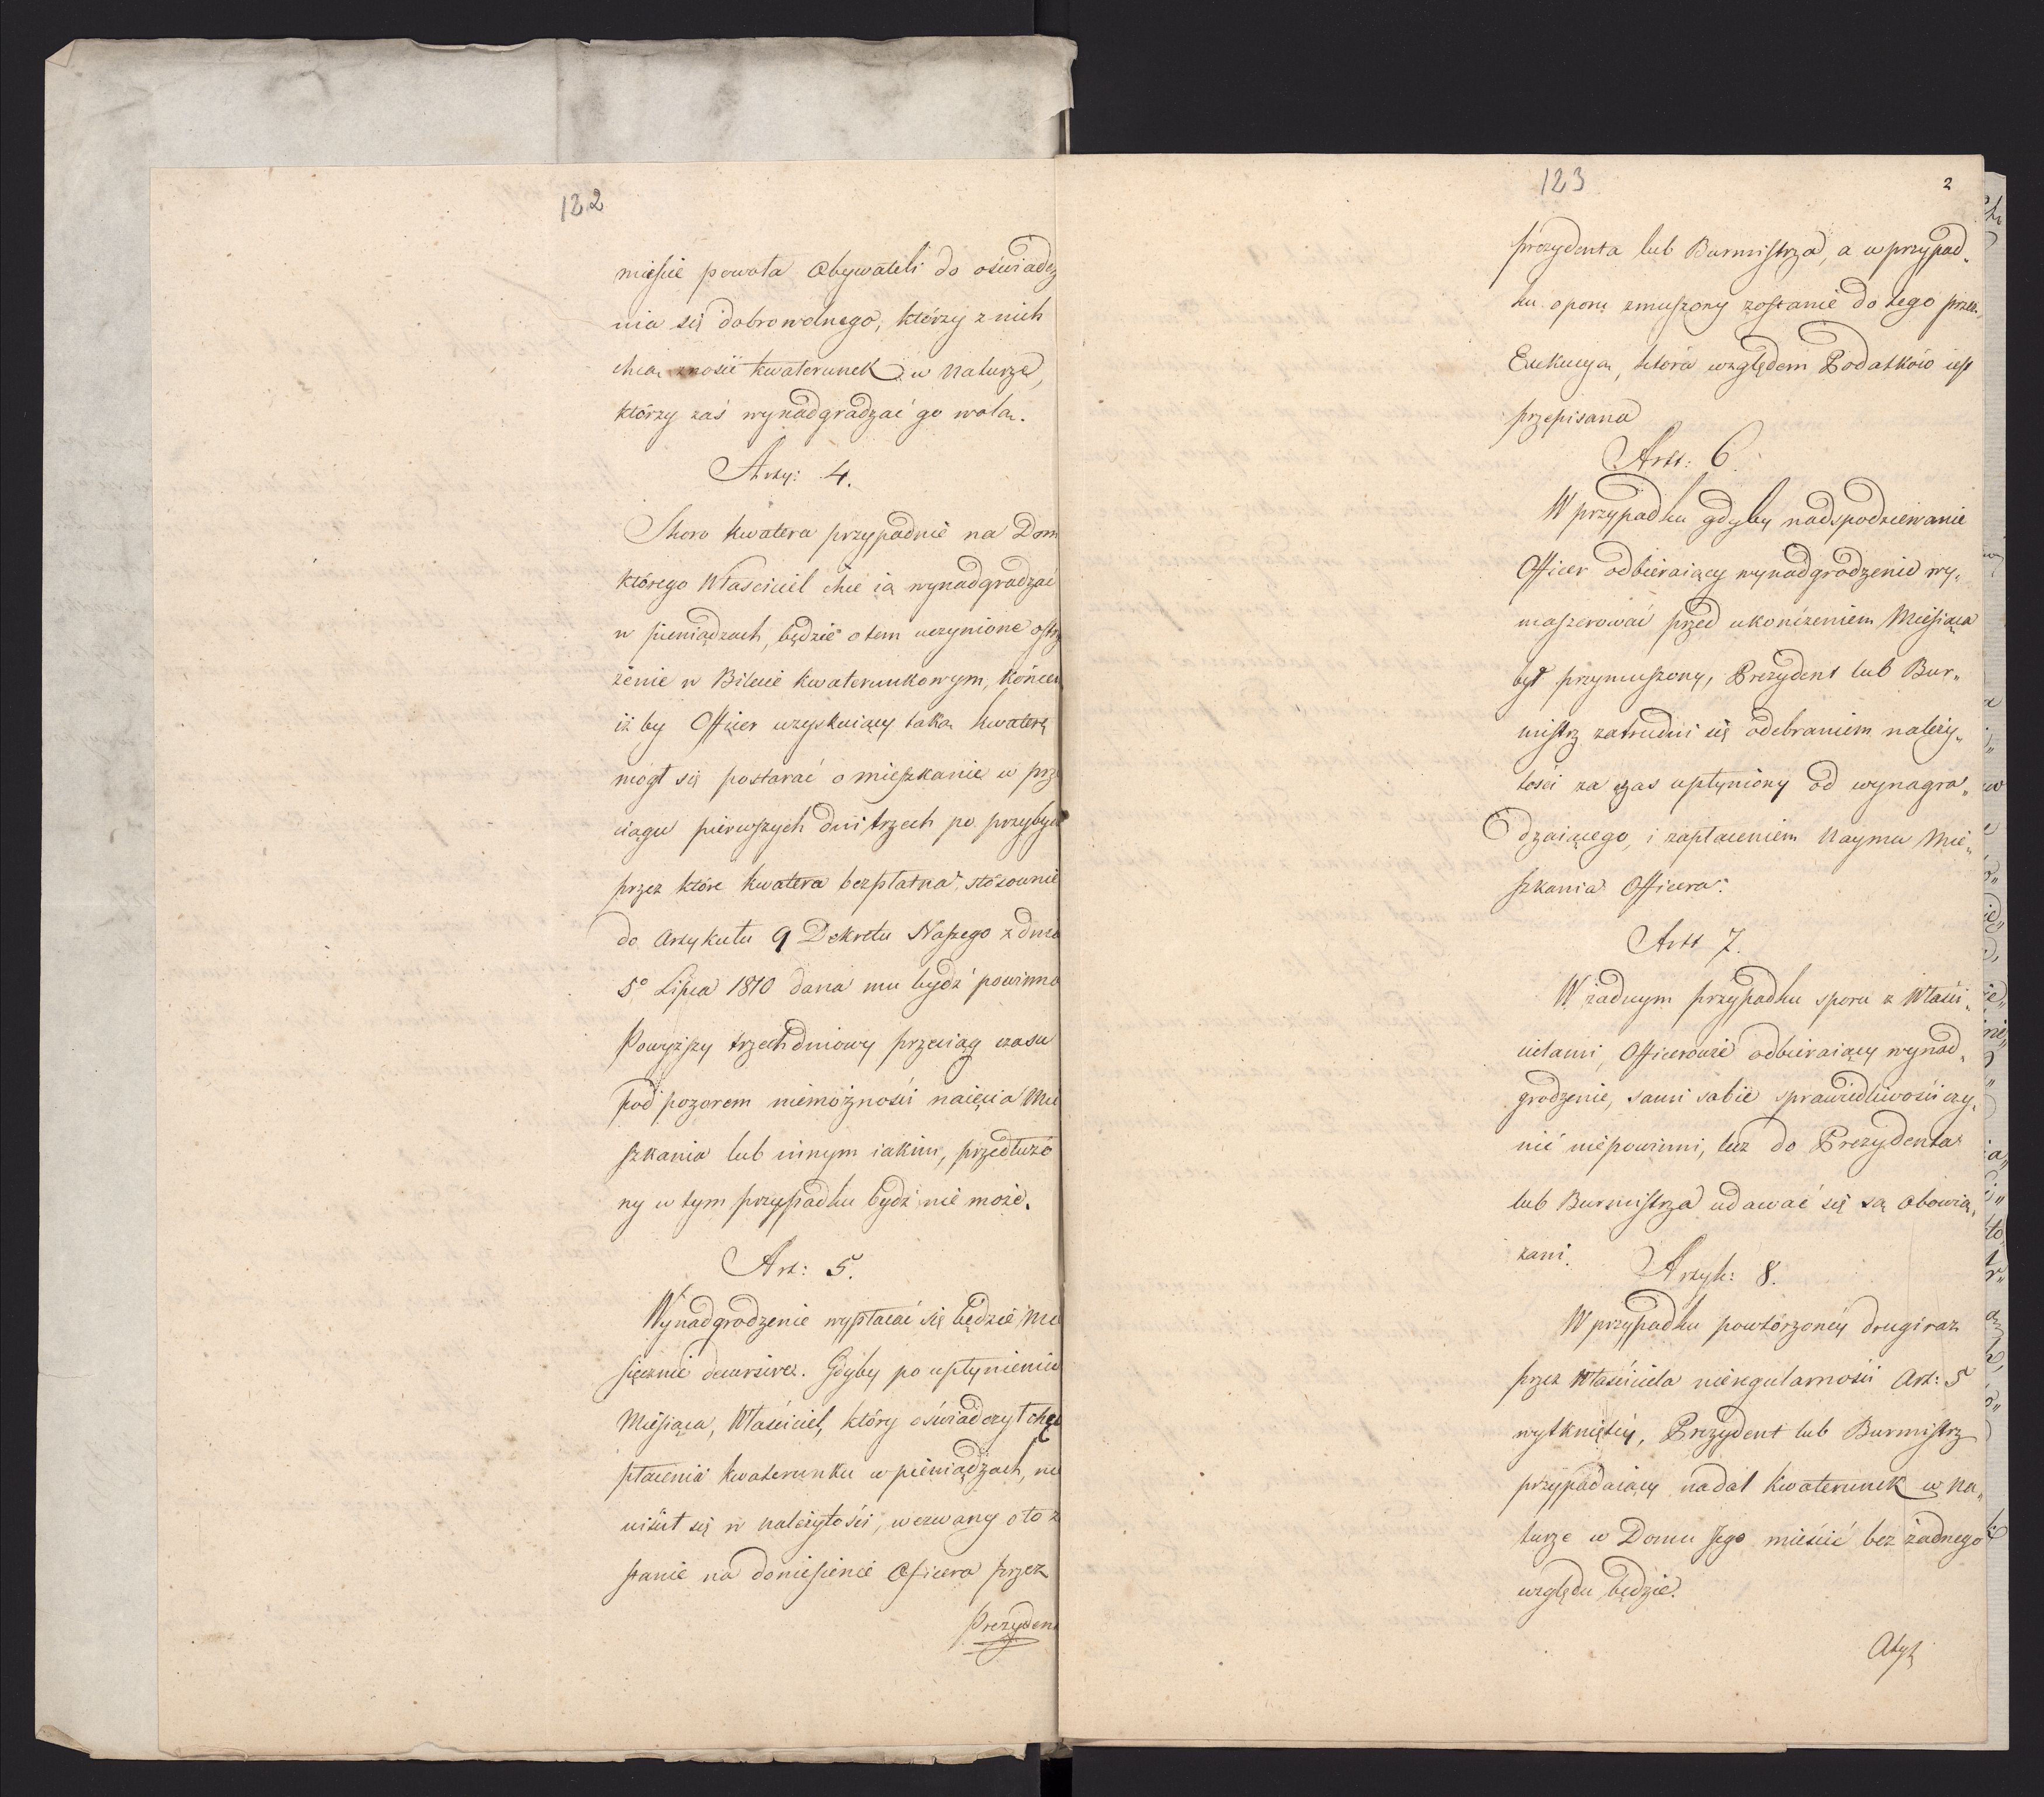 122
mieście powoła Obywateli do oświadcz
nia się dobrowolnego, którzy z nich
chcą znosić kwaterunek w naturze,
którzy zaś wynadgradzać go wolą.
Arty: 4.
Skoro kwatera przypadnie na Dom
którego Właściciel chce ią wynadgradzać
w pieniądzach, będzie o tem uczynione ostrz
żenie w Bilecie kwaterunkowym, końcem
iż by Officer uzyskuiący taką kwaterę
mógł się postarać o mieszkanie w prze
ciągu pierwszych dni trzech po przybyci
przez które kwatera bezpłatna, stosownie
do Artykułu 9 Dekretu Naszego z dnia
5º Lipca 1810 dana mu bydź powinna
Powyższy trzechdniowy przeciąg czasu
pod pozorem niemożności naięcia Mie
szkania lub innym iakim, przedłużo
ny w tym przypadku bydź nie może.
Art: 5.
Wynadgrodzenie wypłacać się będzie Mie
sięcznie decursive. Gdyby po upłynieniu
Miesiąca, Właściciel, który oświadczył chęć
płacenia kwaterunku w pieniądzach, nie
uiścił się w należytości, wezwany o to z
stanie na doniesienie Oficera przez
Prezyden
123
2
prezydenta lub Burmistrza, a w przypad„
ku oporu zmuszony zostanie do tego przez
Exekucyą, która względem Podatków iest
przepisana
Artt: 6.
W przypadku gdyby nadspodziewanie
Officer odbieraiący wynadgrodzenie wy„
maszerować przed ukończeniem Miesiąca
był przymuszony, Prezydent lub Bur„
mistrz zatrudni się odebraniem należy„
tości za czas upłyniony od wynagra„
dzaiącego, i zapłaceniem Naymu Mie„
szkania Officera.
Artt 7.
W żadnym przypadku sporu z Właści„
cielami, Officerowie odbieraiący wynad„
grodzenie, sami sobie sprawiedliwości czy„
nić niepowinni, lecz do Prezydenta
lub Burmistrza udawać się są obowią„
zani.
Artyk: 8.
W przypadku powtórzoney drugi raz
przez Właściciela nieregularności Art: 5
wytkniętey, Prezydent lub Burmistrz
przypadaiący nadal kwaterunek w na„
turze w Domu Jego mieścić bez żadnego
względu będzie.